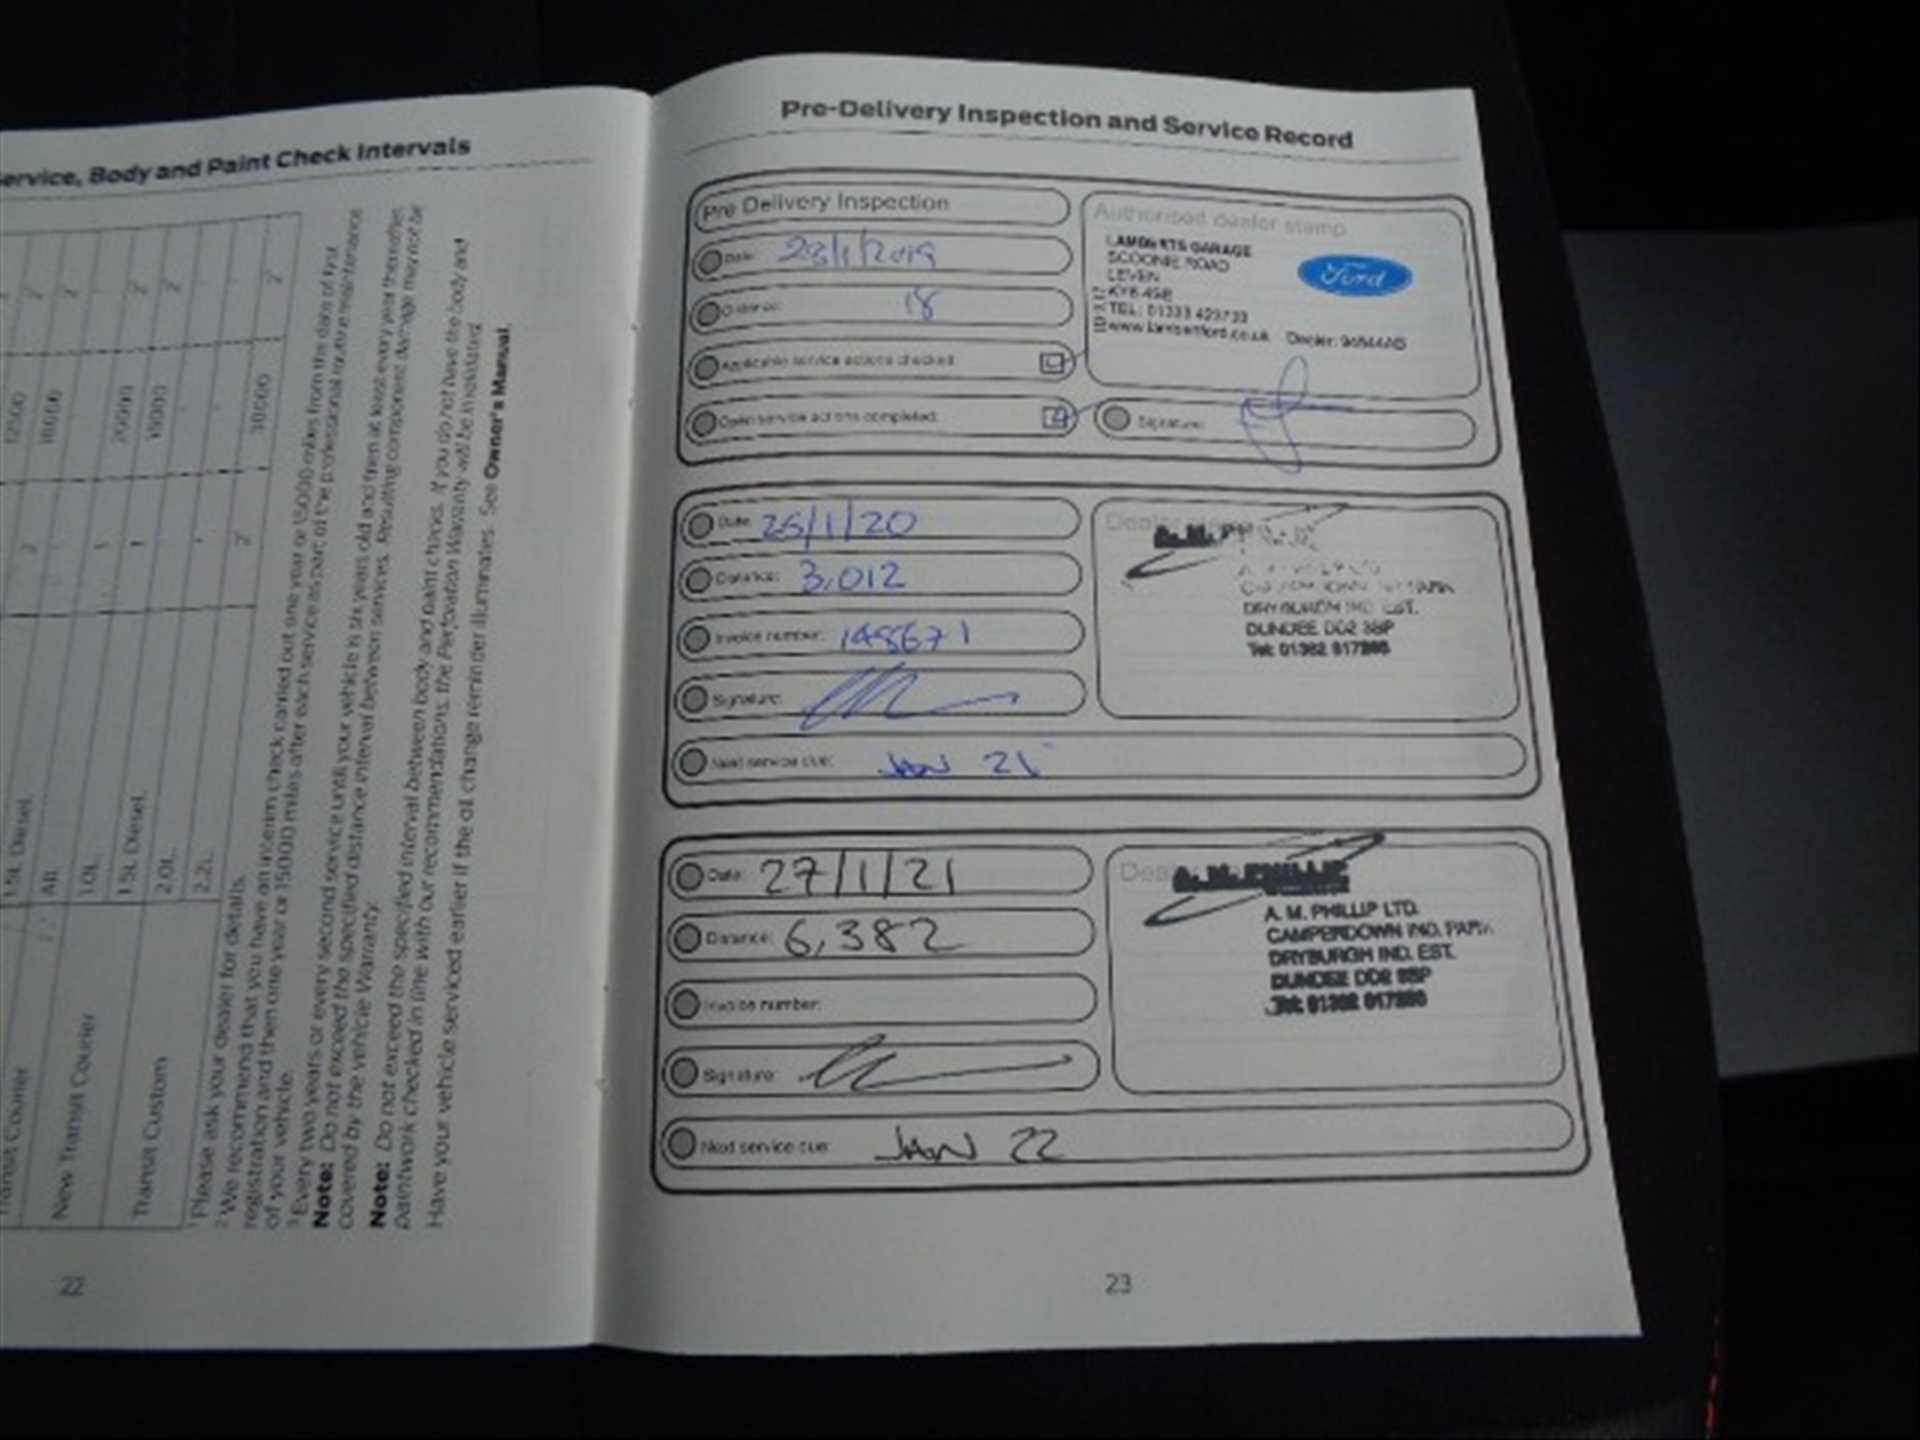 Service, Body and Paint Check Intervals
12500
18000
20000
18000
38000
1.5L Diesel.
All.
1.0L.
1.5L Diesel.
2.0L.
2.2L.
Transit Courier
New Transit Courier
Transit Custom
1 Please ask your dealer for details.
2 We recommend that you have an interim check carried out one year or 15000 miles from the date of first
registration and then one year or 15000 miles after each service as part of the professional routine maintenance
of your vehicle.
3 Every two years or every second service until your vehicle is six years old and then at least every year thereafter.
Note: Do not exceed the specified distance interval between services. Resulting component damage may not be
covered by the vehicle Warranty.
Note: Do not exceed the specified interval between body and paint checks. If you do not have the body and
paintwork checked in line with our recommendations, the Perforation Warranty will be invalidated.
Have your vehicle serviced earlier if the oil change reminder illuminates. See Owner's Manual.
22
Pre-Delivery Inspection and Service Record
Pre Delivery Inspection
Date: /1/2019
18
Applicable service actions checked:
Open service actions completed:
Authorised dealer stamp
LAMBERTS GARAGE
SCOONIE ROAD
LEVEN
TEL: 01333
www.lambertford.co.uk Dealer:
Ford
Signature:
Date: 25/1/20
Distance: 3,012
Invoice number: 148671
Signature:
Next service due: JAN 21
Dealer
DRYBURGH IND. EST.
DUNDEE DD2 3SP
Tel: 01382
Date: 27/1/21
Distance: 6,382
Invoice number:
Signature:
Next service due: JAN 22
A. M. PHILLIP
A. M. PHILLIP LTD.
CAMPERDOWN IND. PARK
DRYBURGH IND. EST.
DUNDEE DD2 3SP
Tel: 01382
23